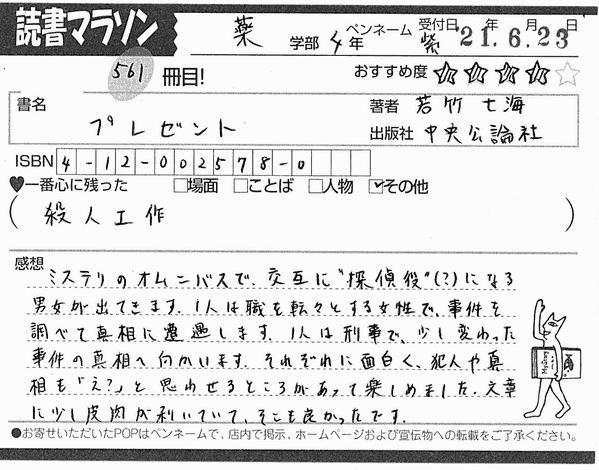 読書マラソン
薬 学部 4年 ペンネーム 紫 受付日 '21.年6.月23日
561 冊目! おすすめ度 ☆☆☆☆☆
書名 プレゼント
著者 若竹七海
出版社 中央公論社
ISBN 4-12-002578-0
♥一番心に残った □場面 □ことば □人物 ☑その他
( 殺人工作 )
感想
ミステリのオムニバスで、交互に"探偵役"(?)になる
男女が出てきます。1人は職を転々とする女性で、事件を
調べて真相に遭遇します。1人は刑事で、少し変わった
事件の真相へ向かいます。それぞれに面白く、犯人や真
相も「え?」と思わせるところがあって楽しめました。文章
に少し皮肉が利いていて、そこも良かったです。
●お寄せいただいたPOPはペンネームで、店内で掲示、ホームページおよび宣伝物への転載をご了承ください。